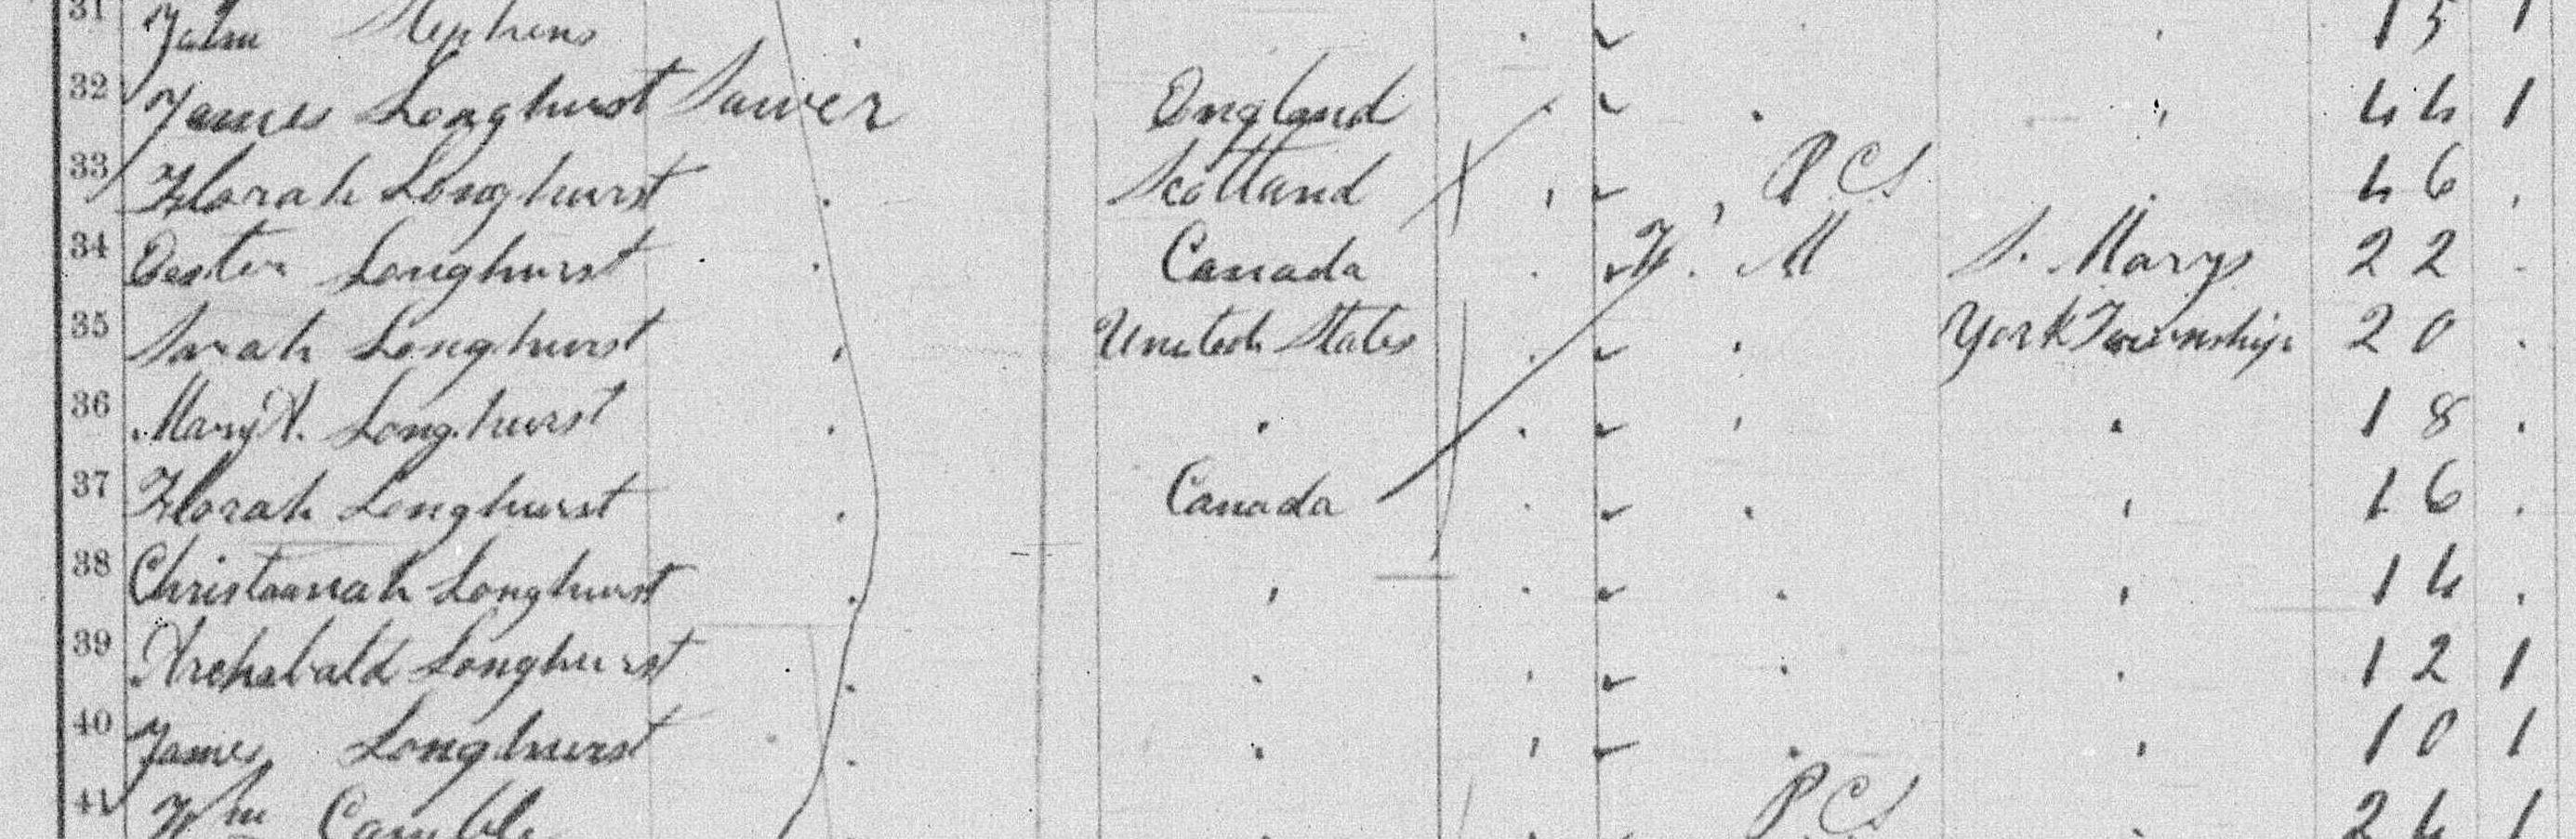 31 John Stephens 15 1
32 James Longhurst Sawer England 44 1
33 Florah Longhurst Scotland P C S 46
34 Longhurst Canada W. M S. Marys 22
35 Sarah Longhurst United States York Township 20
36 Mary A. Longhurst 18
37 Florah Longhurst Canada 16
38 Christaanah Longhurst 14
39 Archabald Longhurst 12 1
40 James Longhurst 10 1
41 Wm Camble P C S 24 1